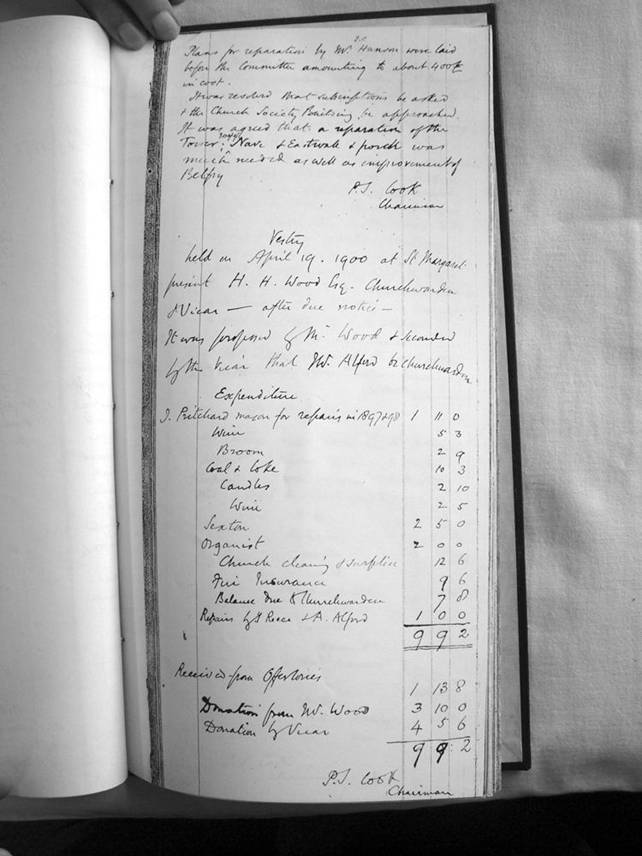 Plans for reparation by Mr Hanson were laid
before the Committee amounting to about 400£
in cost.
It was resolved that subscriptions be asked
& the Church Society Building be approached.
It was agreed that a reparation of the
Tower, Nave & East walls & porch was
much needed as well as improvement of
Belfry
P.S. Cook
Chairman
Vestry
held on April 19. 1900 at St Margaret.
present H. H. Wood Esq. Churchwarden
& Vicar — after due notice —
It was proposed by Mr Wood & seconded
by the Vicar that Mr. Alford be Churchwarden
Expenditure
J. Pritchard mason for repairs in 1897 & 98 1 11 0
Wine 5 3
Broom 2 9
Coal & Coke 10 3
Candles 2 10
Wine 2 5
Sexton 2 5 0
Organist 2 0 0
Church cleaning & surplice 12 6
Fire Insurance 9 6
Balance due to Churchwarden 7 8
Repairs by J Reece & A. Alford 1 0 0
9 9 2
Received from Offertories 1 13 8
Donation from Mr. Wood 3 10 0
Donation by Vicar 4 5 6
9 9 2
P.S. Cook
Chairman